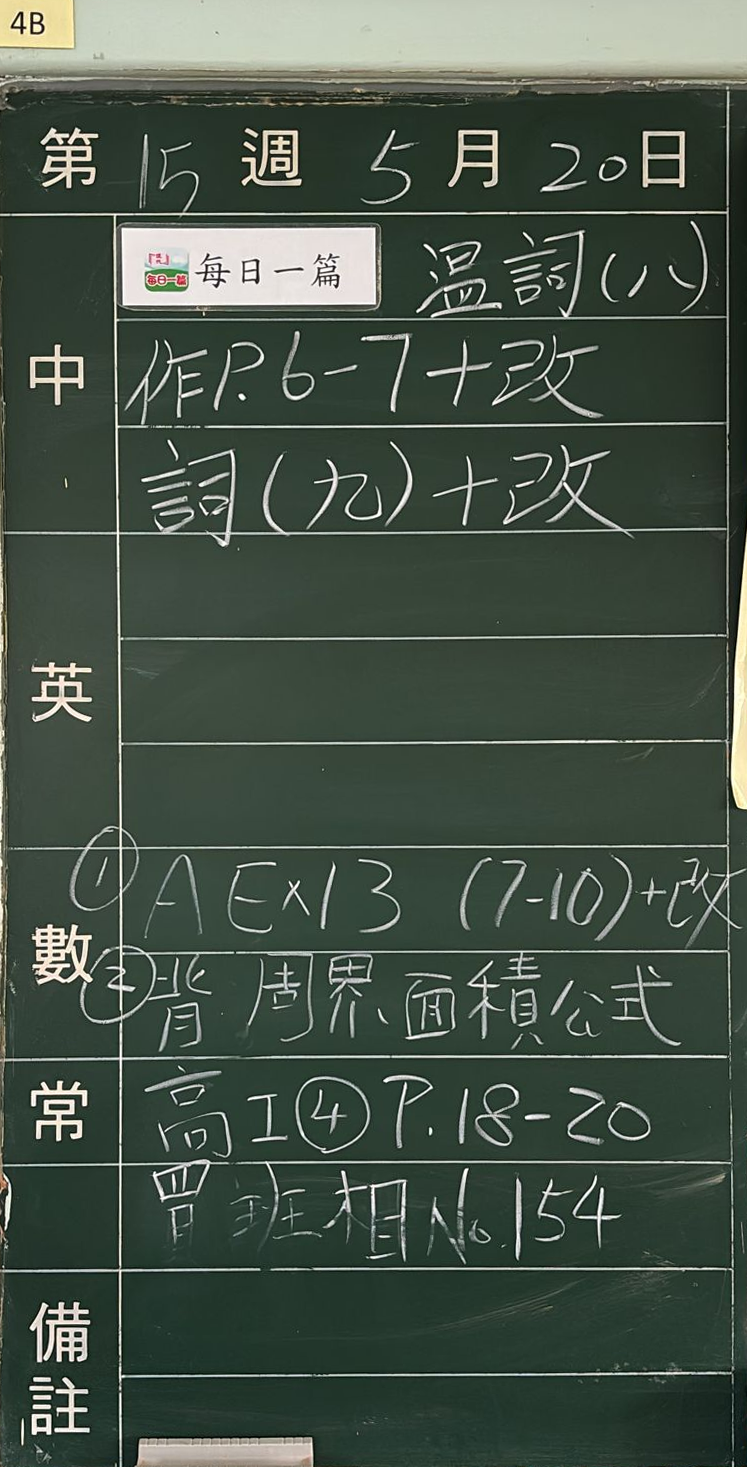 4B
第15週5月20日
每日一篇 每日一篇 温詞(八)
中 作P.6-7+改
詞(九)+改
英
數 ① A Ex13 (7-10)+改
② 背 周界、面積公式
常 高I④P.18-20
班相No.154
備註